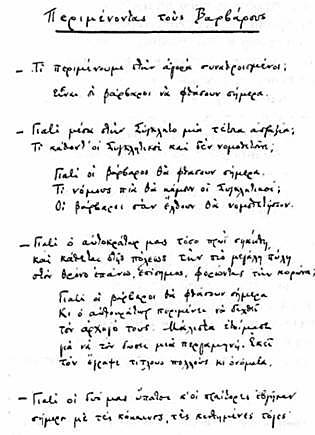 Περιμένοντας τους Βαρβάρους
— Τι περιμένουμε στην αγορά συναθροισμένοι;
Είναι οι βάρβαροι να φθάσουν σήμερα.
— Γιατί μέσα στην Σύγκλητο μια τέτοια απραξία;
Τι κάθοντ' οι Συγκλητικοί και δεν νομοθετούνε;
Γιατί οι βάρβαροι θα φθάσουν σήμερα.
Τι νόμους πια θα κάμουν οι Συγκλητικοί;
Οι βάρβαροι σαν έλθουν θα νομοθετήσουν.
— Γιατί ο αυτοκράτωρ μας τόσο πρωί σηκώθη,
και κάθεται στης πόλεως την πιο μεγάλη πύλη
στον θρόνο επάνω, επίσημος, φορώντας την κορώνα;
Γιατί οι βάρβαροι θα φθάσουν σήμερα
Κι ο αυτοκράτωρ περιμένει να δεχθεί
τον αρχηγό τους. Μάλιστα ετοίμασε
για να τον δώσει μια περγαμηνή. Εκεί
τον έγραψε τίτλους πολλούς κι ονόματα.
— Γιατί οι δυο μας ύπατοι κ' οι πραίτορες εβγήκαν
σήμερα με τες κόκκινες, τες κεντημένες τόγες